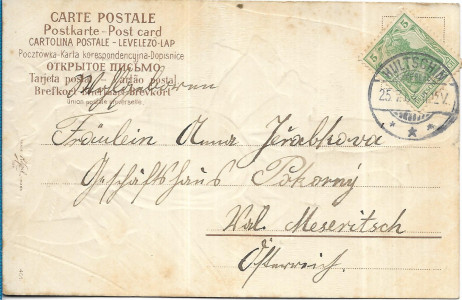 CARTE POSTALE
Postkarte - Post card
CARTOLINA POSTALE - LEVELEZO-LAP
Pocztówka-Karta korespondencyjna-Dopisnice
ОТКРЫТОЕ ПИСЬМО
Tarjeta postal Cartão postal
Brefkort
Union postale universelle.
5
HULTSCHIN
25
Wohlgeboren
Fräulein Anna Jeřabkova
Geschäftshaus Pokorný
Val. Meseritsch
Österreich.